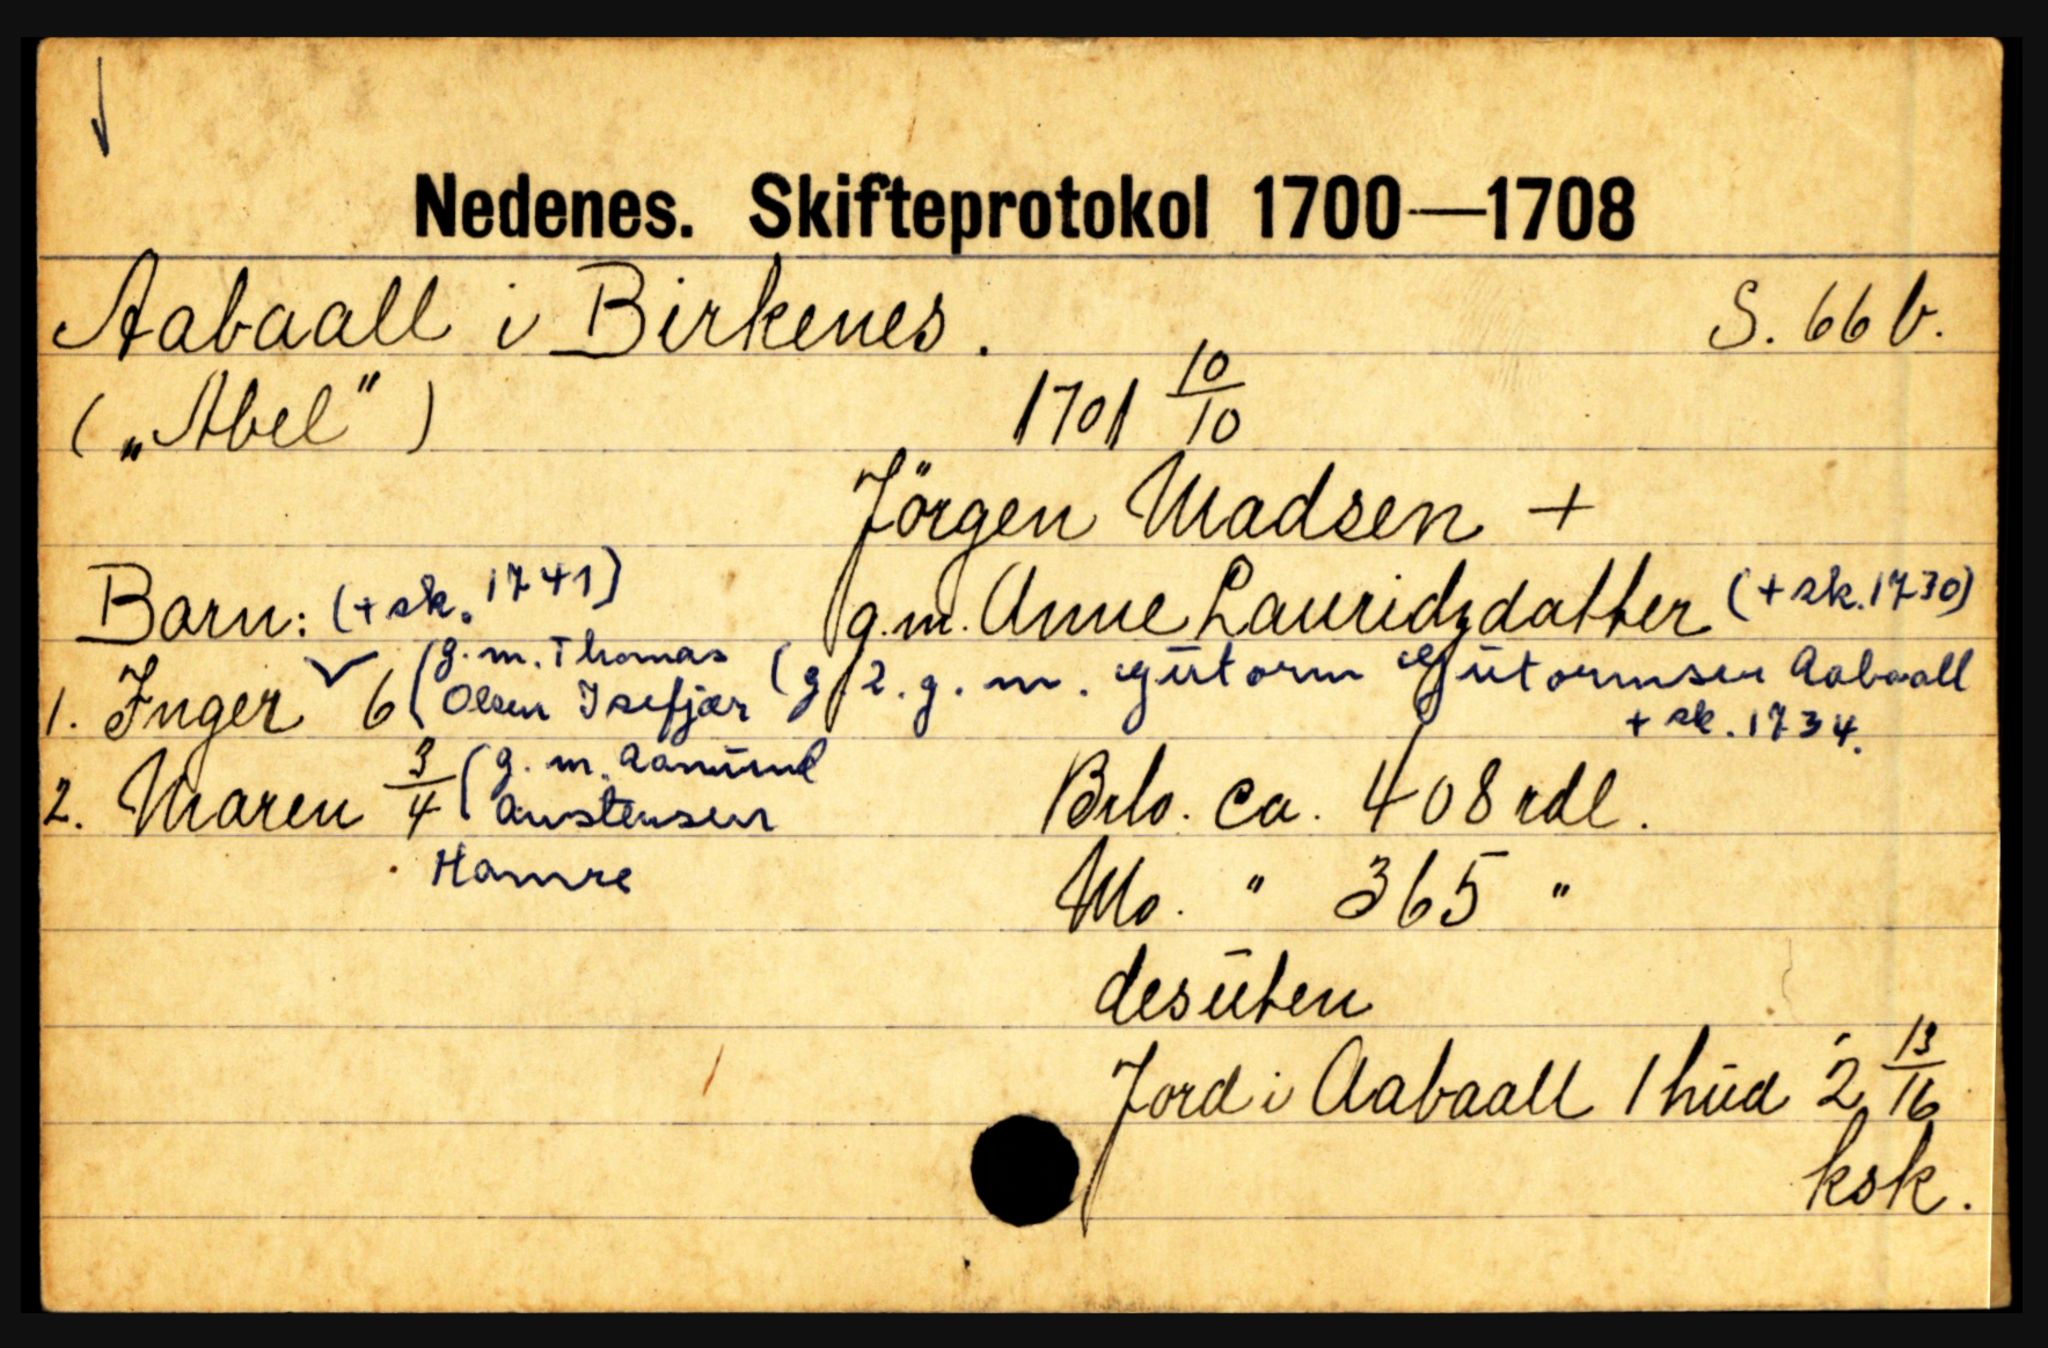 Nedenes. Skifteprotokol 1700—1708
Aabaall i Birkenes. S. 66 b.
(„Abel") 1701 10/10
Jörgen Madsen +
Barn: (+ sk. 1741) g.m. Anne Lauridzdatter (+ sk. 1730)
1. Inger 6 (g. m. Thomas
Olsen Isefjær (g 2. g. m. Gütorm Gütormsen Aabaall
+ sk. 1734.
2. Maren 3/4 (g. m. Aanünd
Austensen
Hamre
Brlo. ca. 408 rdl.
Mo. " 365 "
desüten
Jord i Aabaall 1 hüd 2 13/16
ksk.